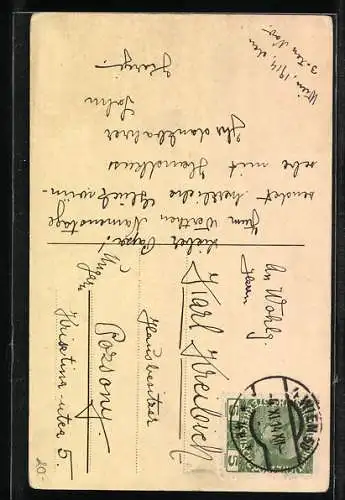 Wien, 1914, den
3-ten Nov.
Lieber Papa!
Zum Werthen Namenstage
sendet herzliche Glückwün-
sche mit Handkuss
Ihr dankbahrer
Sohn
An Wohlg.
Herrn
Karl Kreibich
Hausbesitzer
Pozsony
Ungarn
Krisztina-utca 5.
WIEN
XI.14
5
20-